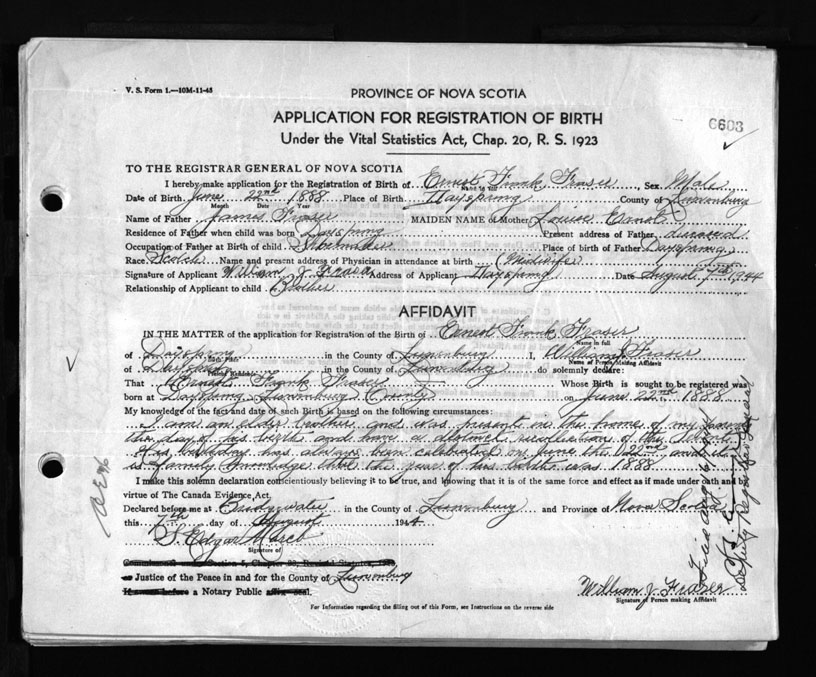 V. S. Form 1.—10M-11-43
PROVINCE OF NOVA SCOTIA
APPLICATION FOR REGISTRATION OF BIRTH
6603
Under the Vital Statistics Act, Chap. 20, R. S. 1923
TO THE REGISTRAR GENERAL OF NOVA SCOTIA
I hereby make application for the Registration of Birth of Ernest Frank Fraser, Sex Male
Name in full
Date of Birth June 22nd 1888 Place of Birth Dayspring County of Lunenburg
Month Date Year
Name of Father James Fraser MAIDEN NAME of Mother Louise
Residence of Father when child was born Dayspring Present address of Father deceased
Occupation of Father at Birth of child Place of birth of Father Dayspring
Race Scotch Name and present address of Physician in attendance at birth Midwife
Signature of Applicant William J Fraser Address of Applicant Dayspring Date August 7th 1944
Relationship of Applicant to child Brother
AFFIDAVIT
IN THE MATTER of the application for Registration of the Birth of Ernest Frank Fraser
Name in full
of Dayspring in the County of Lunenburg I, William J Fraser
Name of Person Making Affidavit
of Dayspring in the County of Lunenburg do solemnly declare:
Present Residence
That Ernest Frank Fraser Whose Birth is sought to be registered was
born at Dayspring Lunenburg County on June 22nd 1888
My knowledge of the fact and date of such Birth is based on the following circumstances:
I am an elder brother and was present in the home of my parents
the day of his birth and have a distinct recollection of the event.
His birthday has always been celebrated on June the 22nd and it
is family knowledge that the year of his birth was 1888
I make this solemn declaration conscientiously believing it to be true, and knowing that it is of the same force and effect as if made under oath and by
virtue of The Canada Evidence Act.
Declared before me at Bridgewater in the County of Lunenburg and Province of Nova Scotia
this 7th day of August 1944
S. Edgar March
Signature of
Justice of the Peace in and for the County of Lunenburg
a Notary Public
William J. Fraser
Signature of Person making Affidavit
For Information regarding the filling out of this Form, see Instructions on the reverse side
Deputy Registrar General